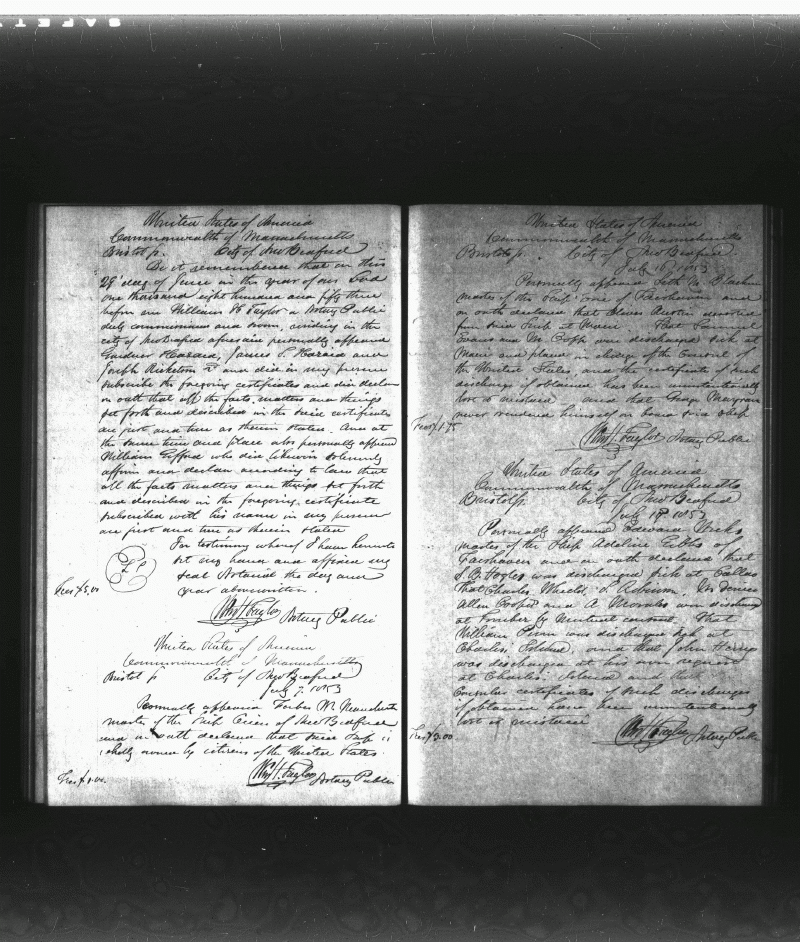 SAFETY
United States of America
Commonwealth of Massachusetts
Bristol ss. City of New Bedford
Be it remembered that on this
29 day of June in the year of our Lord
one thousand eight hundred and fifty three
before me William H Taylor a Notary Public
duly commissioned and sworn, residing in the
city of New Bedford aforesaid personally appeared
Gardner James S. and
Joseph Ricketson 2d and did in my presence
subscribe the foregoing certificates and did declare
on oath that all the facts, matters and things
set forth and described in the said certificates
are just and true as therein stated. And at
the same time and place also personally appeared
William Gifford who did likewise solemnly
affirm and declare according to law that
all the facts matters and things set forth
and described in the foregoing certificate
subscribed with his name in my presence
are just and true as therein stated
In testimony whereof I have hereunto
set my hand and affixed my
seal Notarial the day and
year abovewritten.
Fees $5.00
Wm H Taylor Notary Public
United States of America
Commonwealth of Massachusetts
Bristol ss City of New Bedford
July 7. 1853
Personally appeared W.
master of the Ship of New Bedford
and on oath declared that said Ship is
wholly owned by citizens of the United States.
Fees $1.00.
Wm H. Taylor Notary Public
United States of America
Commonwealth of Massachusetts
Bristol ss. City of New Bedford
July 16, 1853
Personally appeared Seth M. Blackmer
master of the Ship of Fairhaven and
on oath declared that Oliver Austin deserted
from said Ship at Maui. That Samuel
Evans and M. were discharged sick at
Maui and placed in charge of the Consul of
the United States, and the certificate of such
discharge if obtained has been unintentionally
lost or mislaid and that George
never rendered himself on board said Ship.
Fees $1.75
Wm H. Taylor Notary Public
United States of America
Commonwealth of Massachusetts
Bristol ss. City of New Bedford
July 18 1853
Personally appeared Edward
master of the Ship Adeline Gibbs of
Fairhaven and on oath declared that
S. B. was discharged sick at Callao
that Charles
Allen Cooper and A Morales were discharged
at by mutual consent. That
William was discharged at
Charles Island, and that John
was discharged at his own request
at Charles Island and the
Consular certificates of such discharges
if obtained have been unintentionally
lost or mislaid
Fees $3.00
Wm H Taylor Notary Public